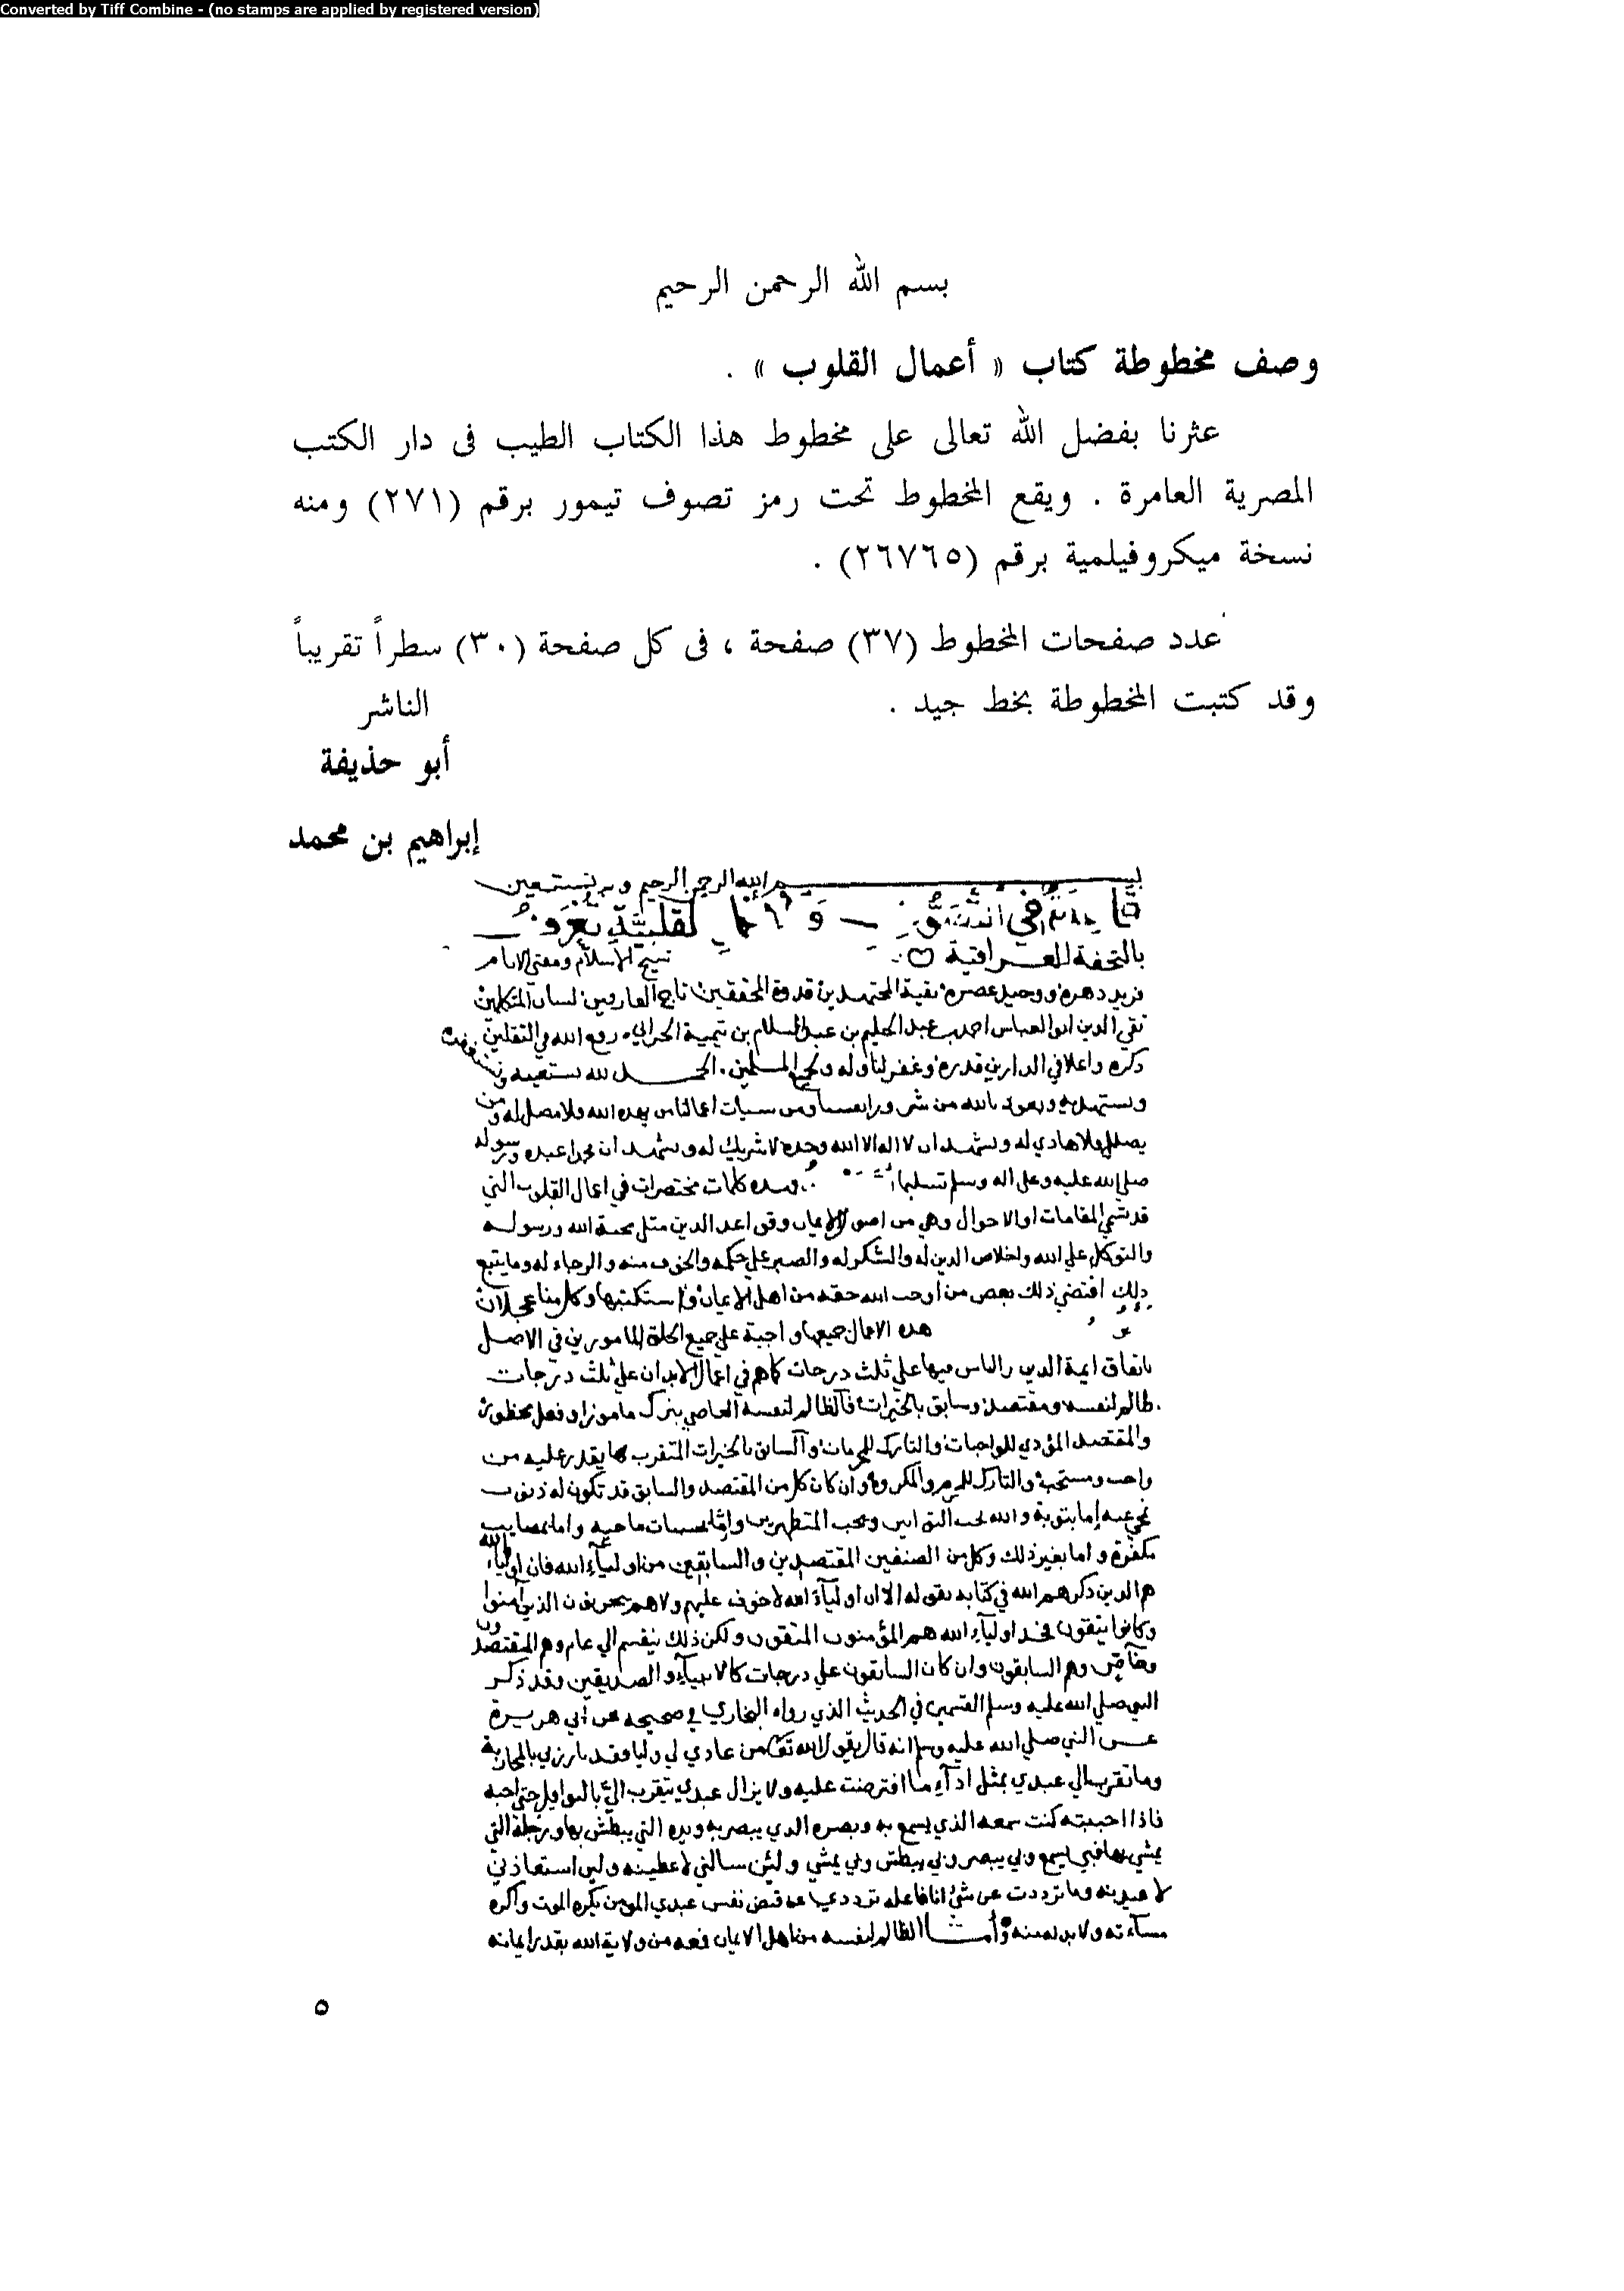 Converted by Tiff Combine - (no stamps are applied by registered version)
بسم الله الرحمن الرحيم
وصف مخطوطة كتاب « أعمال القلوب » .
عثرنا بفضل الله تعالى على مخطوط هذا الكتاب الطيب فى دار الكتب
المصرية العامرة . ويقع المخطوط تحت رمز تصوف تيمور برقم (٢٧١) ومنه
نسخة ميكروفيلمية برقم (٢٦٧٦٥) .
عدد صفحات المخطوط (٣٧) صفحة ، فى كل صفحة (٣٠) سطراً تقريباً
وقد كتبت المخطوطة بخط جيد .
الناشر
أبو حذيفة
إبراهيم بن محمد
بسم الله الرحمن الرحيم وبه نستعين
بالتحفة العراقية شيخ الاسلام ومفتي الانام
فريد دهره ووحيد عصره بقية المجتهدين قدوة المحققين تاج العارفين لسان المتكلمين
تقي الدين ابو العباس احمد بن عبد الحليم بن عبد السلام بن تيمية الحراني رفع الله في الثقلين
ذكره واعلا في الدارين قدره وغفر لنا وله ولجميع المسلمين . الحمد لله نستعينه ونستغفره
ونستهديه ونعوذ بالله من شرور انفسنا ومن سيات اعمالنا من يهده الله فلا مضل له ومن
يضلل فلا هادي له ونشهد ان لا اله الا الله وحده لا شريك له ونشهد ان محمدا عبده ورسوله
صلي الله عليه وعلي اله وسلم تسليما كلمات مختصرات في اعمال القلوب التي
قد تسمي المقامات او الاحوال وهي من اصول الايمان وقواعد الدين مثل محبة الله ورسوله
والتوكل علي الله واخلاص الدين له والشكر له والصبر علي حكمه والخوف منه والرجاء له وما يتبع
ذلك اقتضي ذلك بعض من اوجب الله حقه من اهل الايمان واستكتبها وكل منا عجلان
هذه الاعمال جميعها واجبة علي جميع الخلق المامورين في الاصل
باتفاق ايمة الدين والناس فيها علي ثلث درجات كما هم في اعمال الابدان علي ثلث درجات
ظالم لنفسه ومقتصد وسابق بالخيرات فالظالم لنفسه العاصي بترك مامور او فعل محظور
والمقتصد المؤدي للواجبات والتارك للمحرمات والسابق بالخيرات المتقرب بما يقدر عليه من
واجب ومستحب والتارك للمحرم والمكروه وان كان كل من المقتصد والسابق قد تكون له ذنوب
تمحي عنه إما بتوبة والله يحب التوابين ويحب المتطهرين وإما بحسنات ماحية واما بمصايب
مكفرة واما بغير ذلك وكل من الصنفين المقتصدين والسابقين من اولياء الله فان اولياء الله
هم الذين ذكرهم الله في كتابه بقوله الا ان اولياء الله لا خوف عليهم ولا هم يحزنون الذين آمنوا
وكانوا يتقون فحد اولياء الله هم المؤمنون المتقون ولكن ذلك ينقسم الي عام وهم المقتصدون
وخاص وهم السابقون وان كان السابقون علي درجات كالانبياء والصديقين وقد ذكر
النبي صلي الله عليه وسلم القسمين في الحديث الذي رواه البخاري في صحيحه عن أبي هريرة
عن النبي صلي الله عليه وسلم انه قال يقول الله تعالى من عادي لي وليا فقد بارزني بالمحاربة
وما تقرب الي عبدي بمثل اداء ما افترضت عليه ولا يزال عبدي يتقرب الي بالنوافل حتي احبه
فاذا احببته كنت سمعه الذي يسمع به وبصره الذي يبصر به ويده التي يبطش بها ورجله التي
يمشي بها فبي يسمع وبي يبصر وبي يبطش وبي يمشي ولئن سالني لاعطينه ولين استعاذني
لاعيذنه وما ترددت عن شئ انا فاعله ترددي عن قبض نفس عبدي المومن يكره الموت واكره
مساءته ولا بد له منه وأمـا الظالم لنفسه من اهل الايمان فمعه من ولاية الله بقدر ايمانه
٥